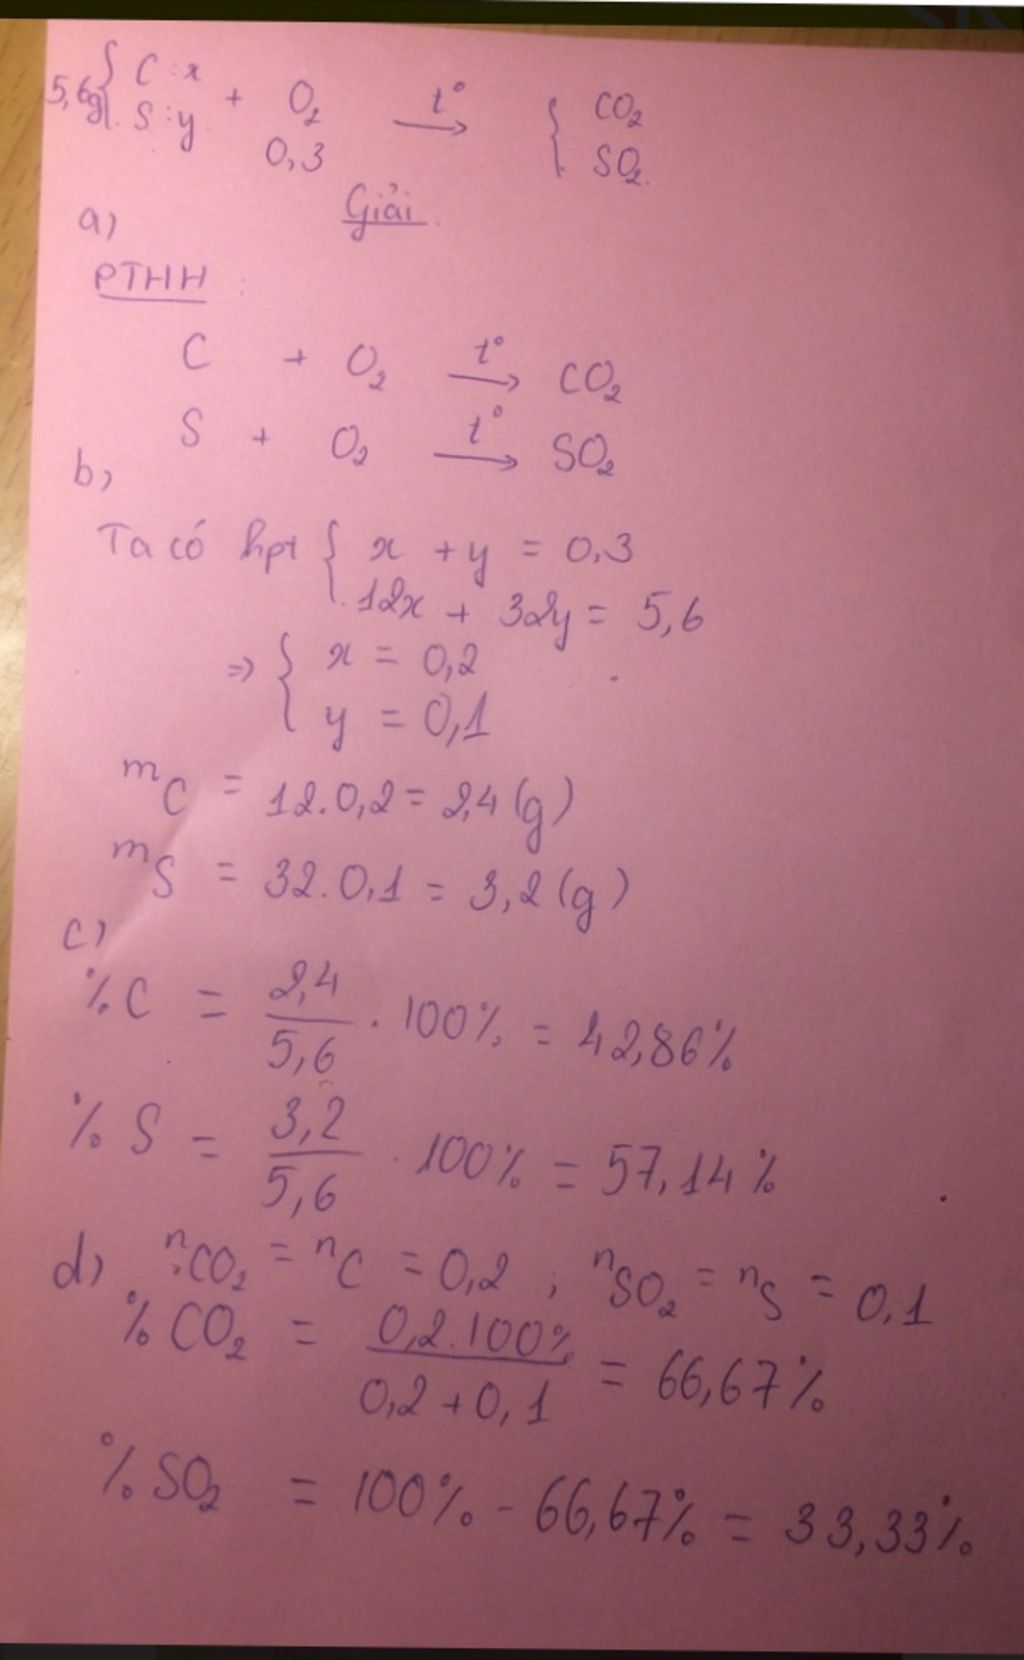 5,6g { C : x + O₂ t° → { CO₂
S : y 0,3 SO₂
Giải
a)
PTHH :
C + O₂ t° → CO₂
S + O₂ t° → SO₂
b)
Ta có hpt { x + y = 0,3
12x + 32y = 5,6
⇒ { x = 0,2
y = 0,1
mC = 12.0,2 = 2,4 (g)
mS = 32.0,1 = 3,2 (g)
c)
%C = 2,4/5,6 . 100% = 42,86%
% S = 3,2/5,6 . 100% = 57,14%
d) nCO₂ = nC = 0,2 ; nSO₂ = nS = 0,1
% CO₂ = 0,2.100%/0,2 + 0,1 = 66,67%
% SO₂ = 100% - 66,67% = 33,33%